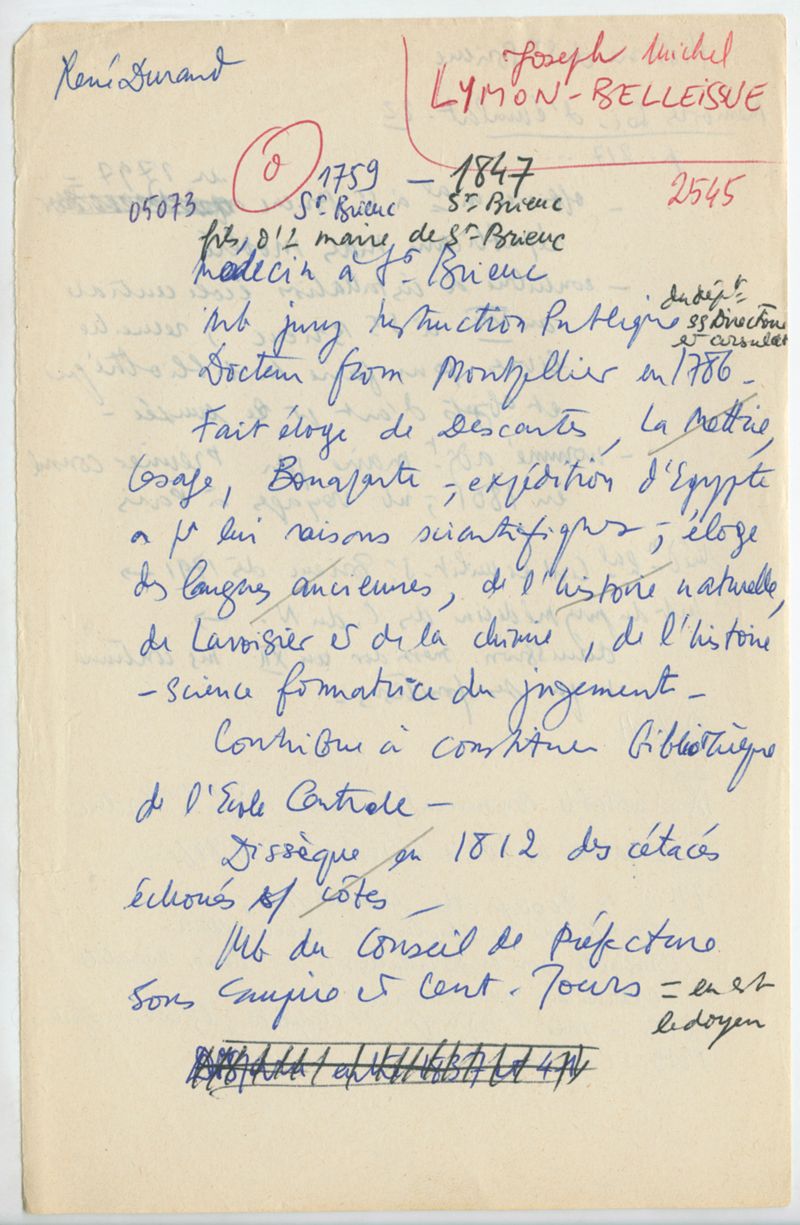 René Durand
Joseph Michel
LYMON-BELLEISSUE
2545
0
1759 — 1847
05073 St-Brieuc St-Brieuc
fils, d'1 maire de St-Brieuc
médecin à St-Brieuc
Mb jury Instruction Publique du dépt = ss Directoire et consulat
Docteur from Montpellier en 1786 -
Fait éloge de Descartes, La Mettrie,
Lesage, Bonaparte -, expédition d'Egypte
a pr lui raisons scientifiques -, éloge
des langues anciennes, de l'histoire naturelle,
de Lavoisier et de la chimie, de l'histoire
- science formatrice du jugement -
Contribue à constituer bibliothèque
de l'Ecole Centrale -
Dissèque en 1812 des cétacés
échoués s/ côtes -
Mb du Conseil de Préfecture
sous Empire et Cent-Jours = en est
le doyen